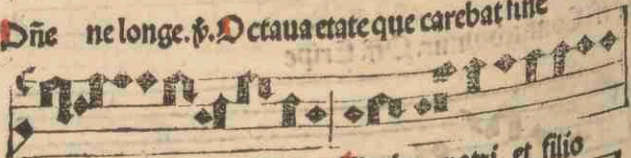 Dñe ne longe. ℣. Octaua etate que carebat fine
et filio